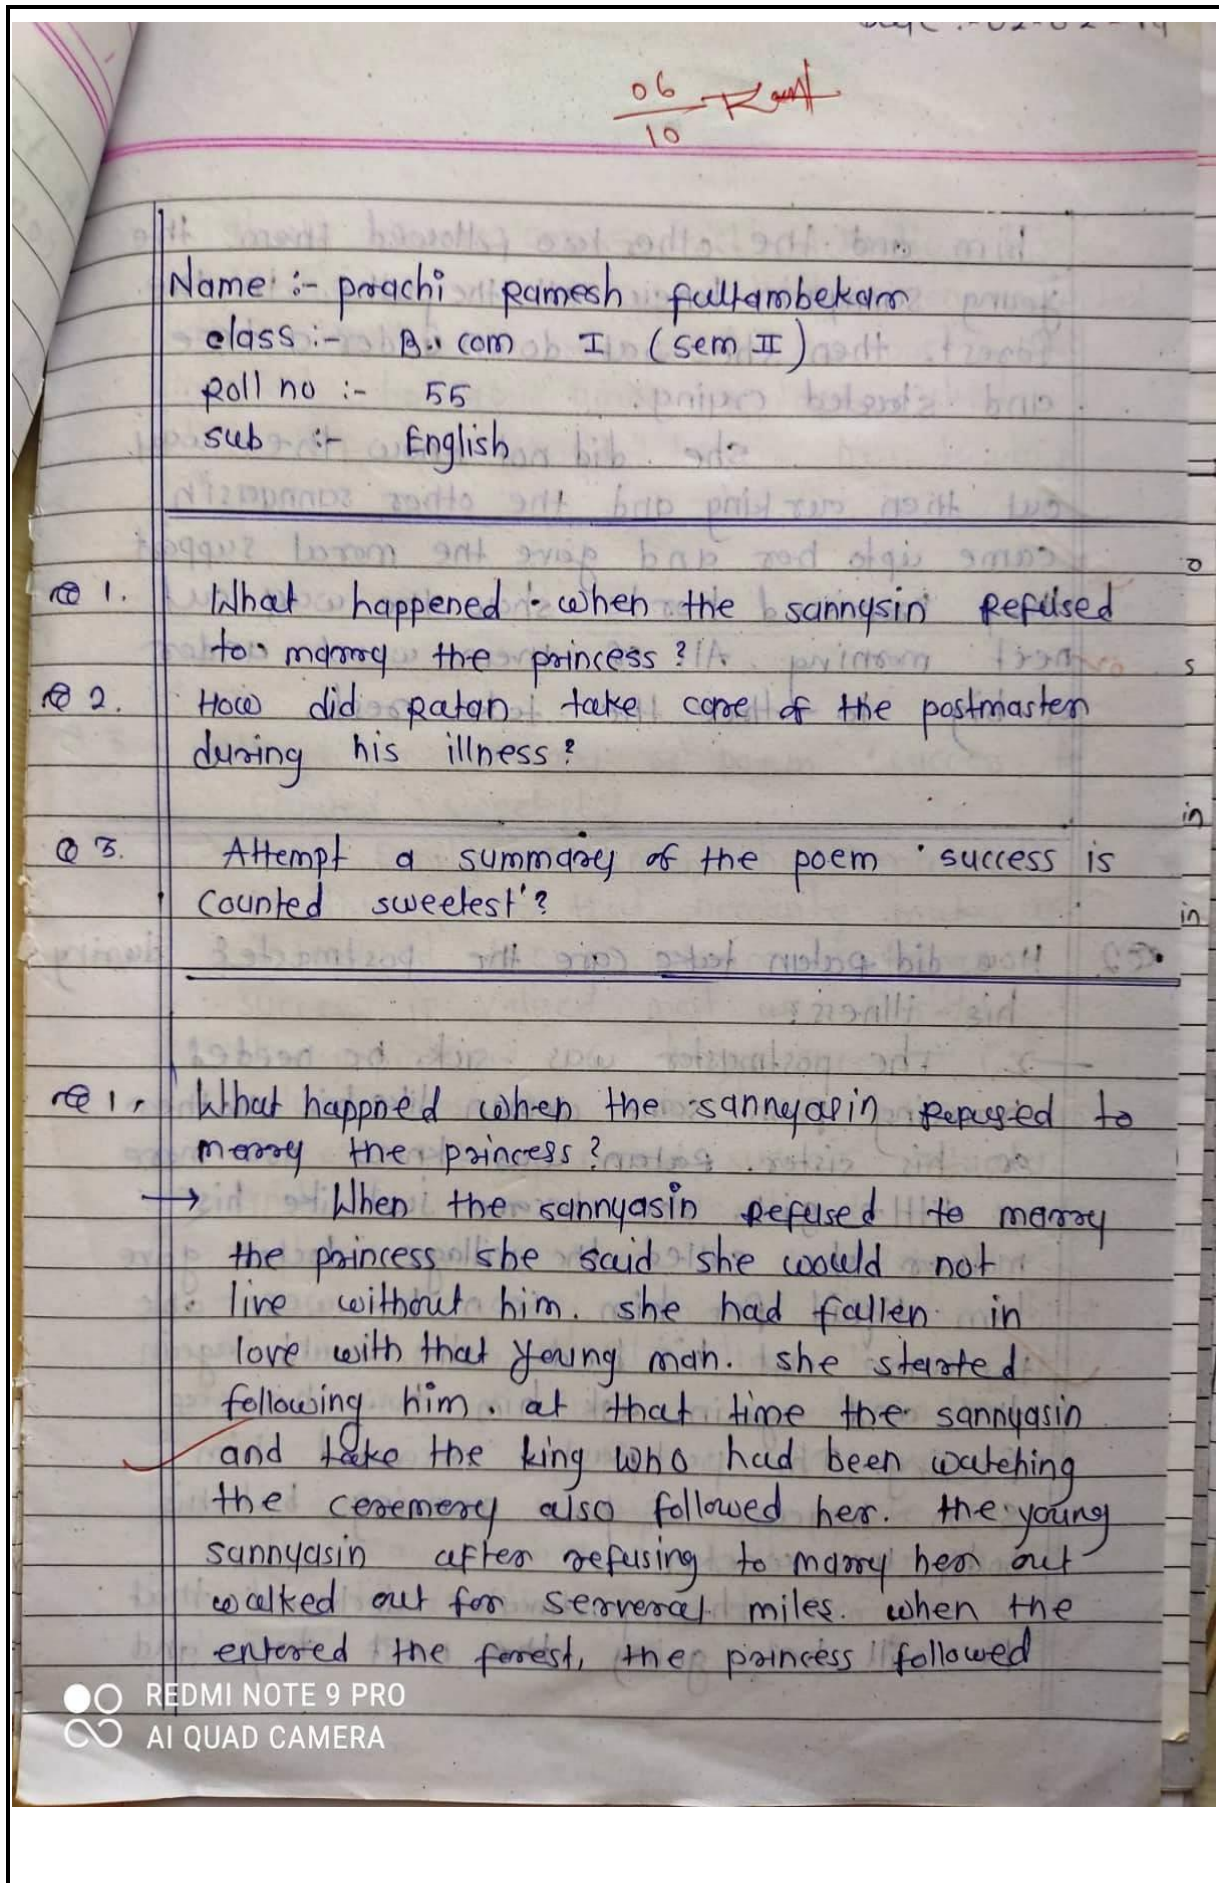 06
10
Name :- prachi Ramesh fultambekar
class :- B. com I (sem II)
Roll no :- 55
sub :- English
Q 1. What happened when the sannysin Refused
to marry the princess ?
Q 2. How did Ratan take care of the postmaster
during his illness ?
Q 3. Attempt a summary of the poem 'success is
counted sweetest' ?
Q 1. What happned when the sannyasin Repused to
marry the princess ?
→ When the sannyasin Refused to marry
the princess she said she would not
live without him. she had fallen in
love with that young man. she started
following him. at that time the sannyasin
and take the king who had been watching
the ceremery also followed her. the young
sannyasin after refusing to marry her out
walked out for serveral miles. when the
entered the forest, the princess followed
REDMI NOTE 9 PRO
AI QUAD CAMERA